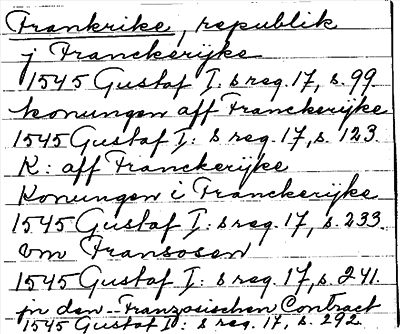 Frankrike, republik
j Franckerijke
1545 Gustaf I: s reg. 17, s. 99.
konungen aff Franckerijke
1545 Gustaf I: s reg. 17, s. 123.
K: aff Franckerijke
Konungen i Franckerijke
1545 Gustaf I: s reg. 17, s. 233.
om Fransosen
1545 Gustaf I: s reg. 17, s. 241.
jn den -- Franzosischen Contract
1545 Gustaf I: s reg. 17, s. 292.